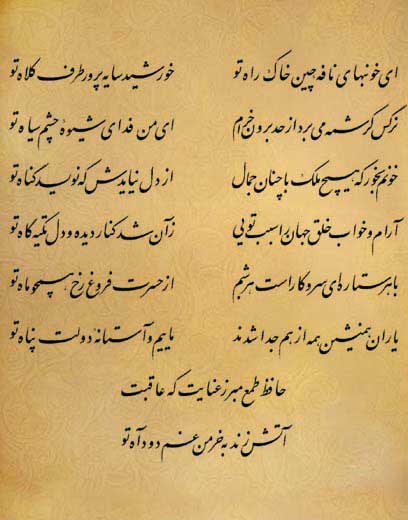 ای خونبهای نافه چین خاک راه تو خورشید سایه پرور طرف کلاه تو
نرگس کرشمه می برد از حد برون خرام ای من فدای شیوهٔ چشم سیاه تو
خونم بخور که هیچ ملک با چنان جمال از دل نیایدش که نویسد گناه تو
آرام و خواب خلق جهان را سبب تویی زآن شد کنار دیده و دل تکیه گاه تو
با هر ستاره ای سر و کار است هر شبم از حسرت فروغ رخ همچو ماه تو
یاران همنشین همه از هم جدا شدند ماییم و آستانهٔ دولت پناه تو
حافظ طمع مبر ز عنایت که عاقبت
آتش زند به خرمن غم دود آه تو